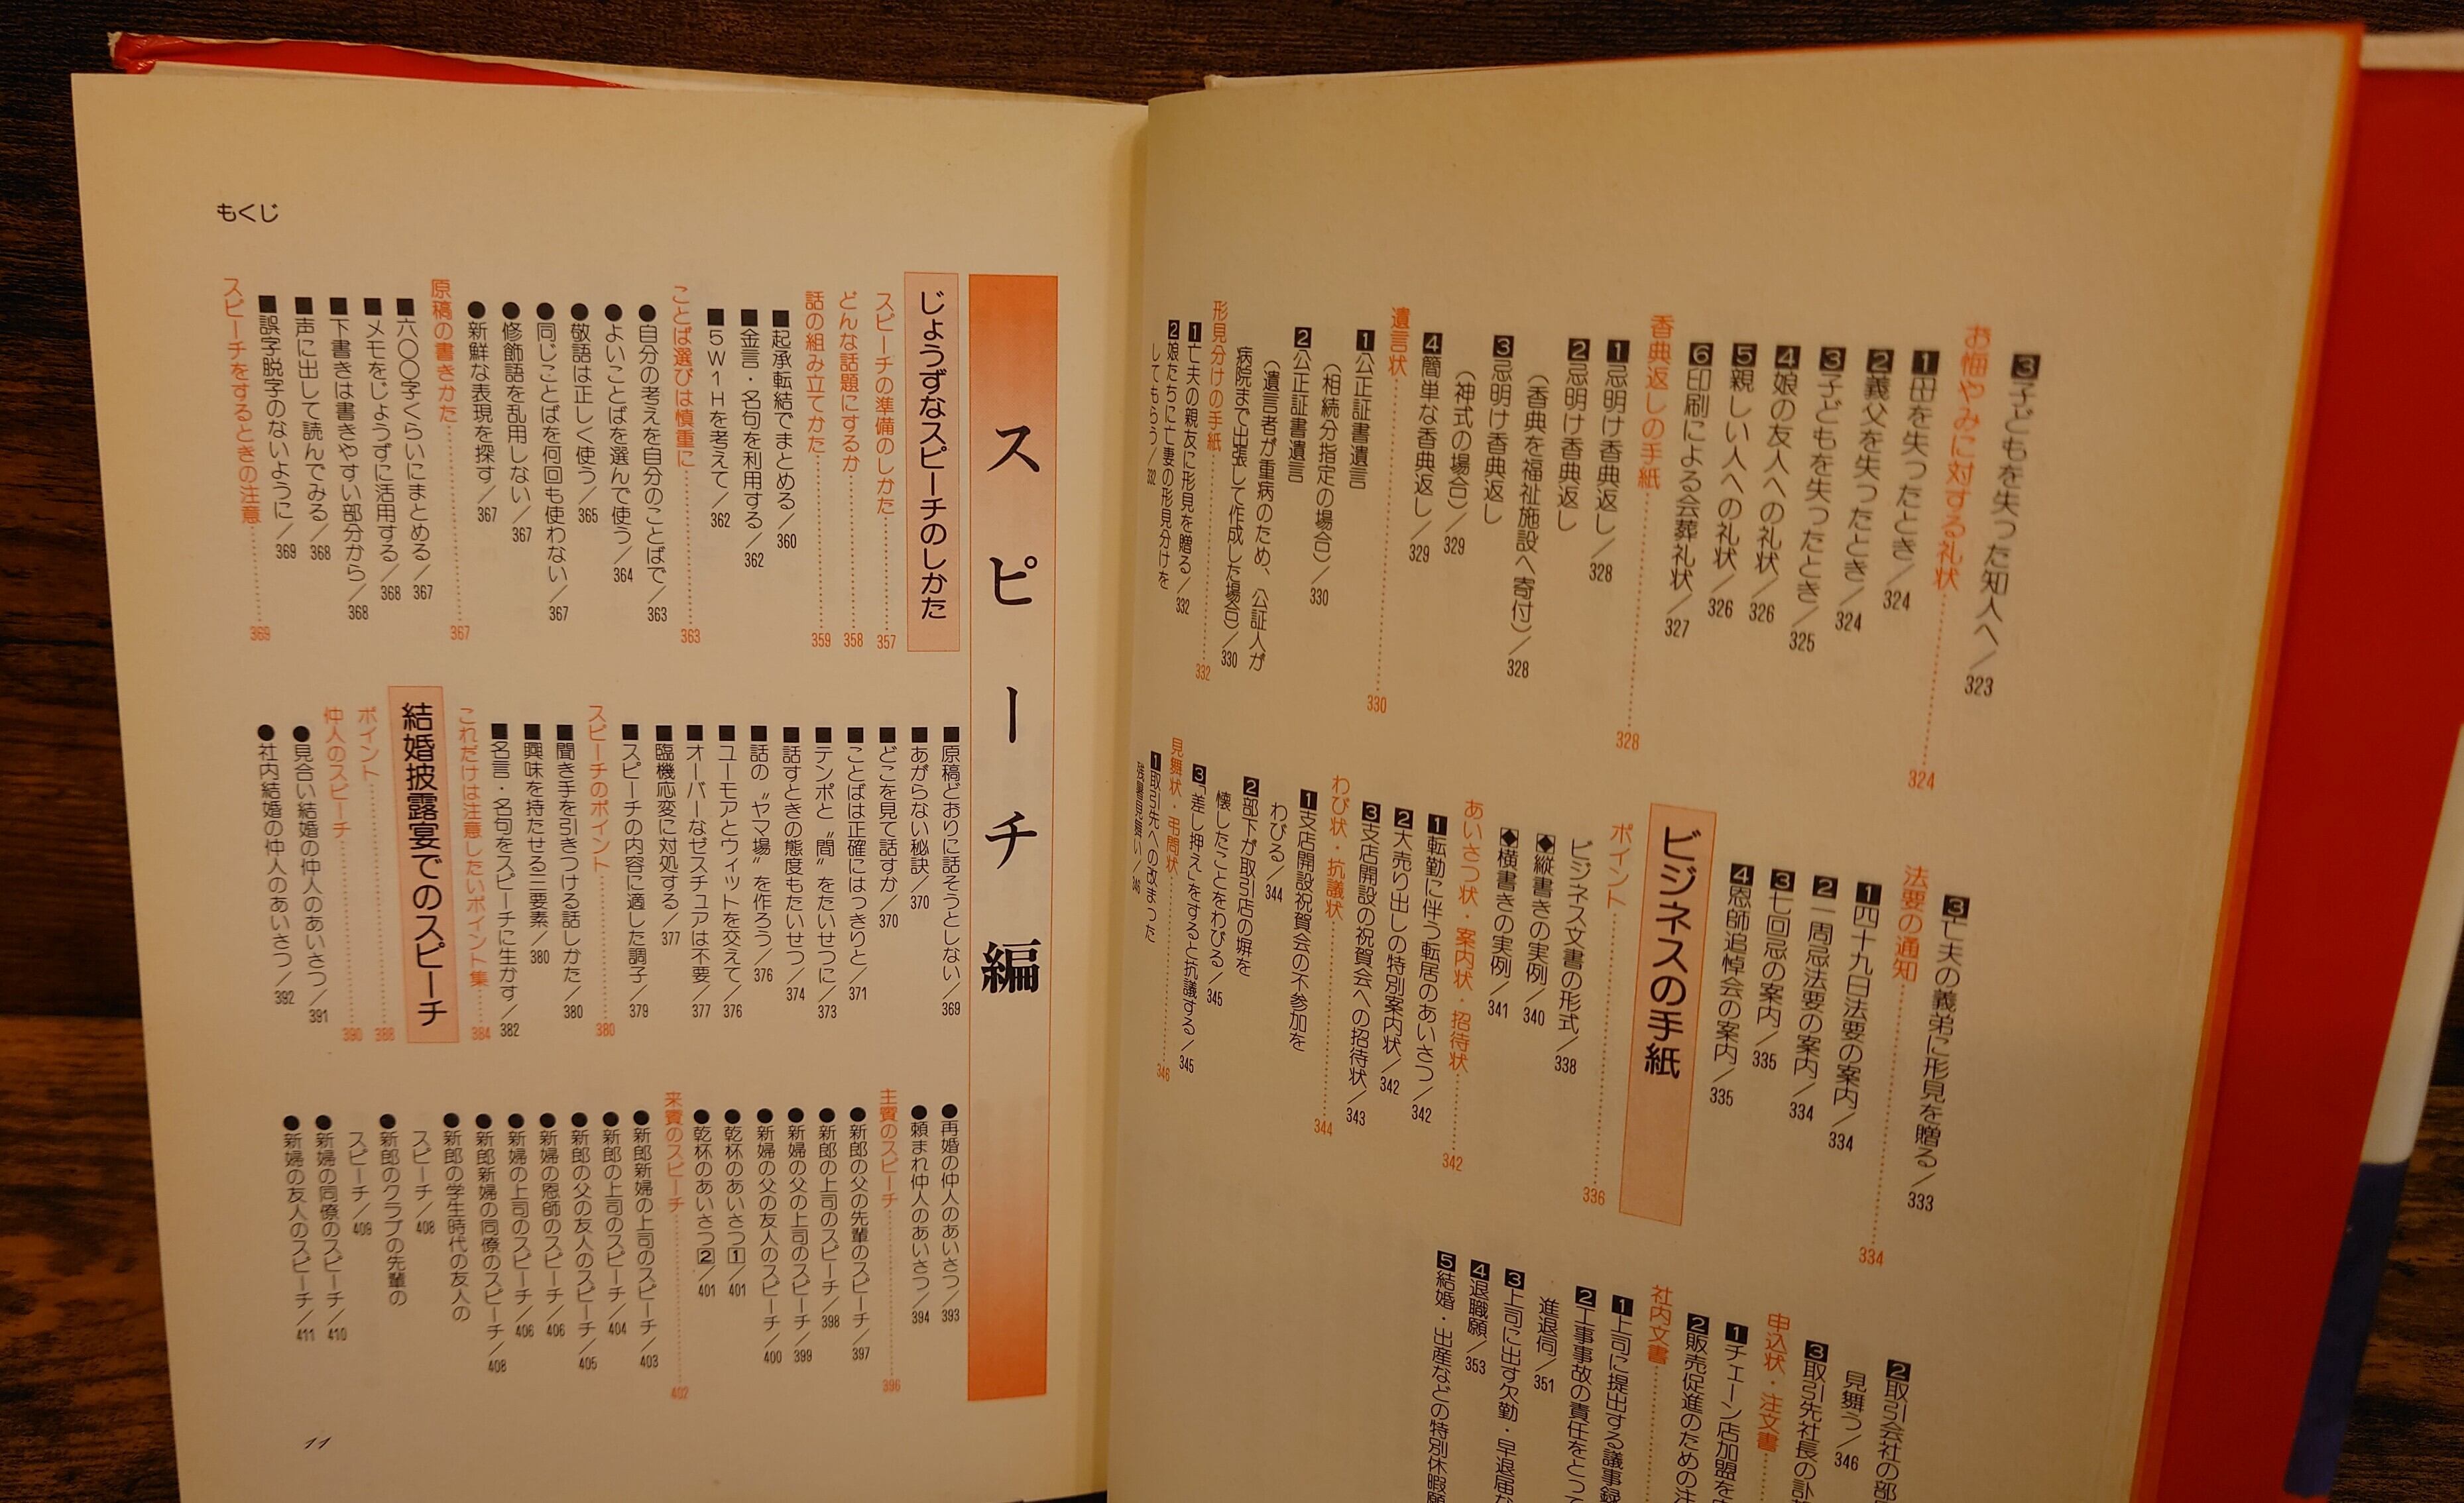 3子どもを失った知人へ／323
お悔やみに対する礼状………324
1母を失ったとき／324
2義父を失ったとき／324
3子どもを失ったとき／325
4娘の友人への礼状／326
5親しい人への礼状／326
6印刷による会葬礼状／327
香典返しの手紙………328
1忌明け香典返し／328
2忌明け香典返し
（香典を福祉施設へ寄付）／328
3忌明け香典返し
（神式の場合）／329
4簡単な香典返し／329
遺言状………330
1公正証書遺言
（相続分指定の場合）／330
2公正証書遺言
（遺言者が重病のため、公証人が
病院まで出張して作成した場合）／330
形見分けの手紙………332
1亡夫の親友に形見を贈る／332
2娘たちに亡妻の形見分けを
してもらう／332
3亡夫の義弟に形見を贈る／333
法要の通知………334
1四十九日法要の案内／334
2一周忌法要の案内／334
3七回忌の案内／335
4恩師追悼会の案内／335
ビジネスの手紙
ポイント………336
ビジネス文書の形式／338
◆縦書きの実例／340
◆横書きの実例／341
あいさつ状・案内状・招待状………342
1転勤に伴う転居のあいさつ／342
2大売り出しの特別案内状／342
3支店開設の祝賀会への招待状／343
わび状・抗議状………344
1支店開設祝賀会の不参加を
わびる／344
2部下が取引店の塀を
懐したことをわびる／345
3「差し押え」をすると抗議する／345
見舞状・弔問状………346
1取引先への改まった
残暑見舞い／346
2取引会社の部
見舞う／346
3取引先社長の訃
申込状・注文書
1チェーン店加盟を
2販売促進のための注
社内文書
1上司に提出する議事録
2工事事故の責任をとって
進退伺／351
3上司に出す欠勤・早退届
4退職願／353
5結婚・出産などの特別休暇願
スピーチ編
じょうずなスピーチのしかた
スピーチの準備のしかた………357
どんな話題にするか………358
話の組み立てかた………359
■起承転結でまとめる／360
■金言・名句を利用する／362
■5W1Hを考えて／362
ことば選びは慎重に………363
●自分の考えを自分のことばで／363
●よいことばを選んで使う／364
●敬語は正しく使う／365
●同じことばを何回も使わない／367
●修飾語を乱用しない／367
●新鮮な表現を探す／367
原稿の書きかた………367
■六〇〇字くらいにまとめる／367
■メモをじょうずに活用する／368
■下書きは書きやすい部分から／368
■声に出して読んでみる／368
■誤字脱字のないように／369
スピーチをするときの注意………369
■原稿どおりに話そうとしない／369
■あがらない秘訣／370
■どこを見て話すか／370
■ことばは正確にはっきりと／371
■テンポと〝間〟をたいせつに／373
■話すときの態度もたいせつ／374
■話の〝ヤマ場〟を作ろう／376
■ユーモアとウィットを交えて／376
■オーバーなゼスチュアは不要／377
■臨機応変に対処する／377
■スピーチの内容に適した調子／379
スピーチのポイント………380
■聞き手を引きつける話しかた／380
■興味を持たせる三要素／380
■名言・名句をスピーチに生かす／382
これだけは注意したいポイント集………384
結婚披露宴でのスピーチ
ポイント………388
仲人のスピーチ………390
●見合い結婚の仲人のあいさつ／391
●社内結婚の仲人のあいさつ／392
●再婚の仲人のあいさつ／393
●頼まれ仲人のあいさつ／394
主賓のスピーチ………396
●新郎の父の先輩のスピーチ／397
●新郎の上司のスピーチ／398
●新婦の父の上司のスピーチ／399
●新婦の父の友人のスピーチ／400
●乾杯のあいさつ1／401
●乾杯のあいさつ2／401
来賓のスピーチ………402
●新郎新婦の上司のスピーチ／403
●新郎の上司のスピーチ／404
●新郎の父の友人のスピーチ／405
●新婦の恩師のスピーチ／406
●新婦の上司のスピーチ／406
●新郎新婦の同僚のスピーチ／408
●新郎の学生時代の友人の
スピーチ／408
●新郎のクラブの先輩の
スピーチ／409
●新婦の同僚のスピーチ／410
●新婦の友人のスピーチ／411
もくじ
11